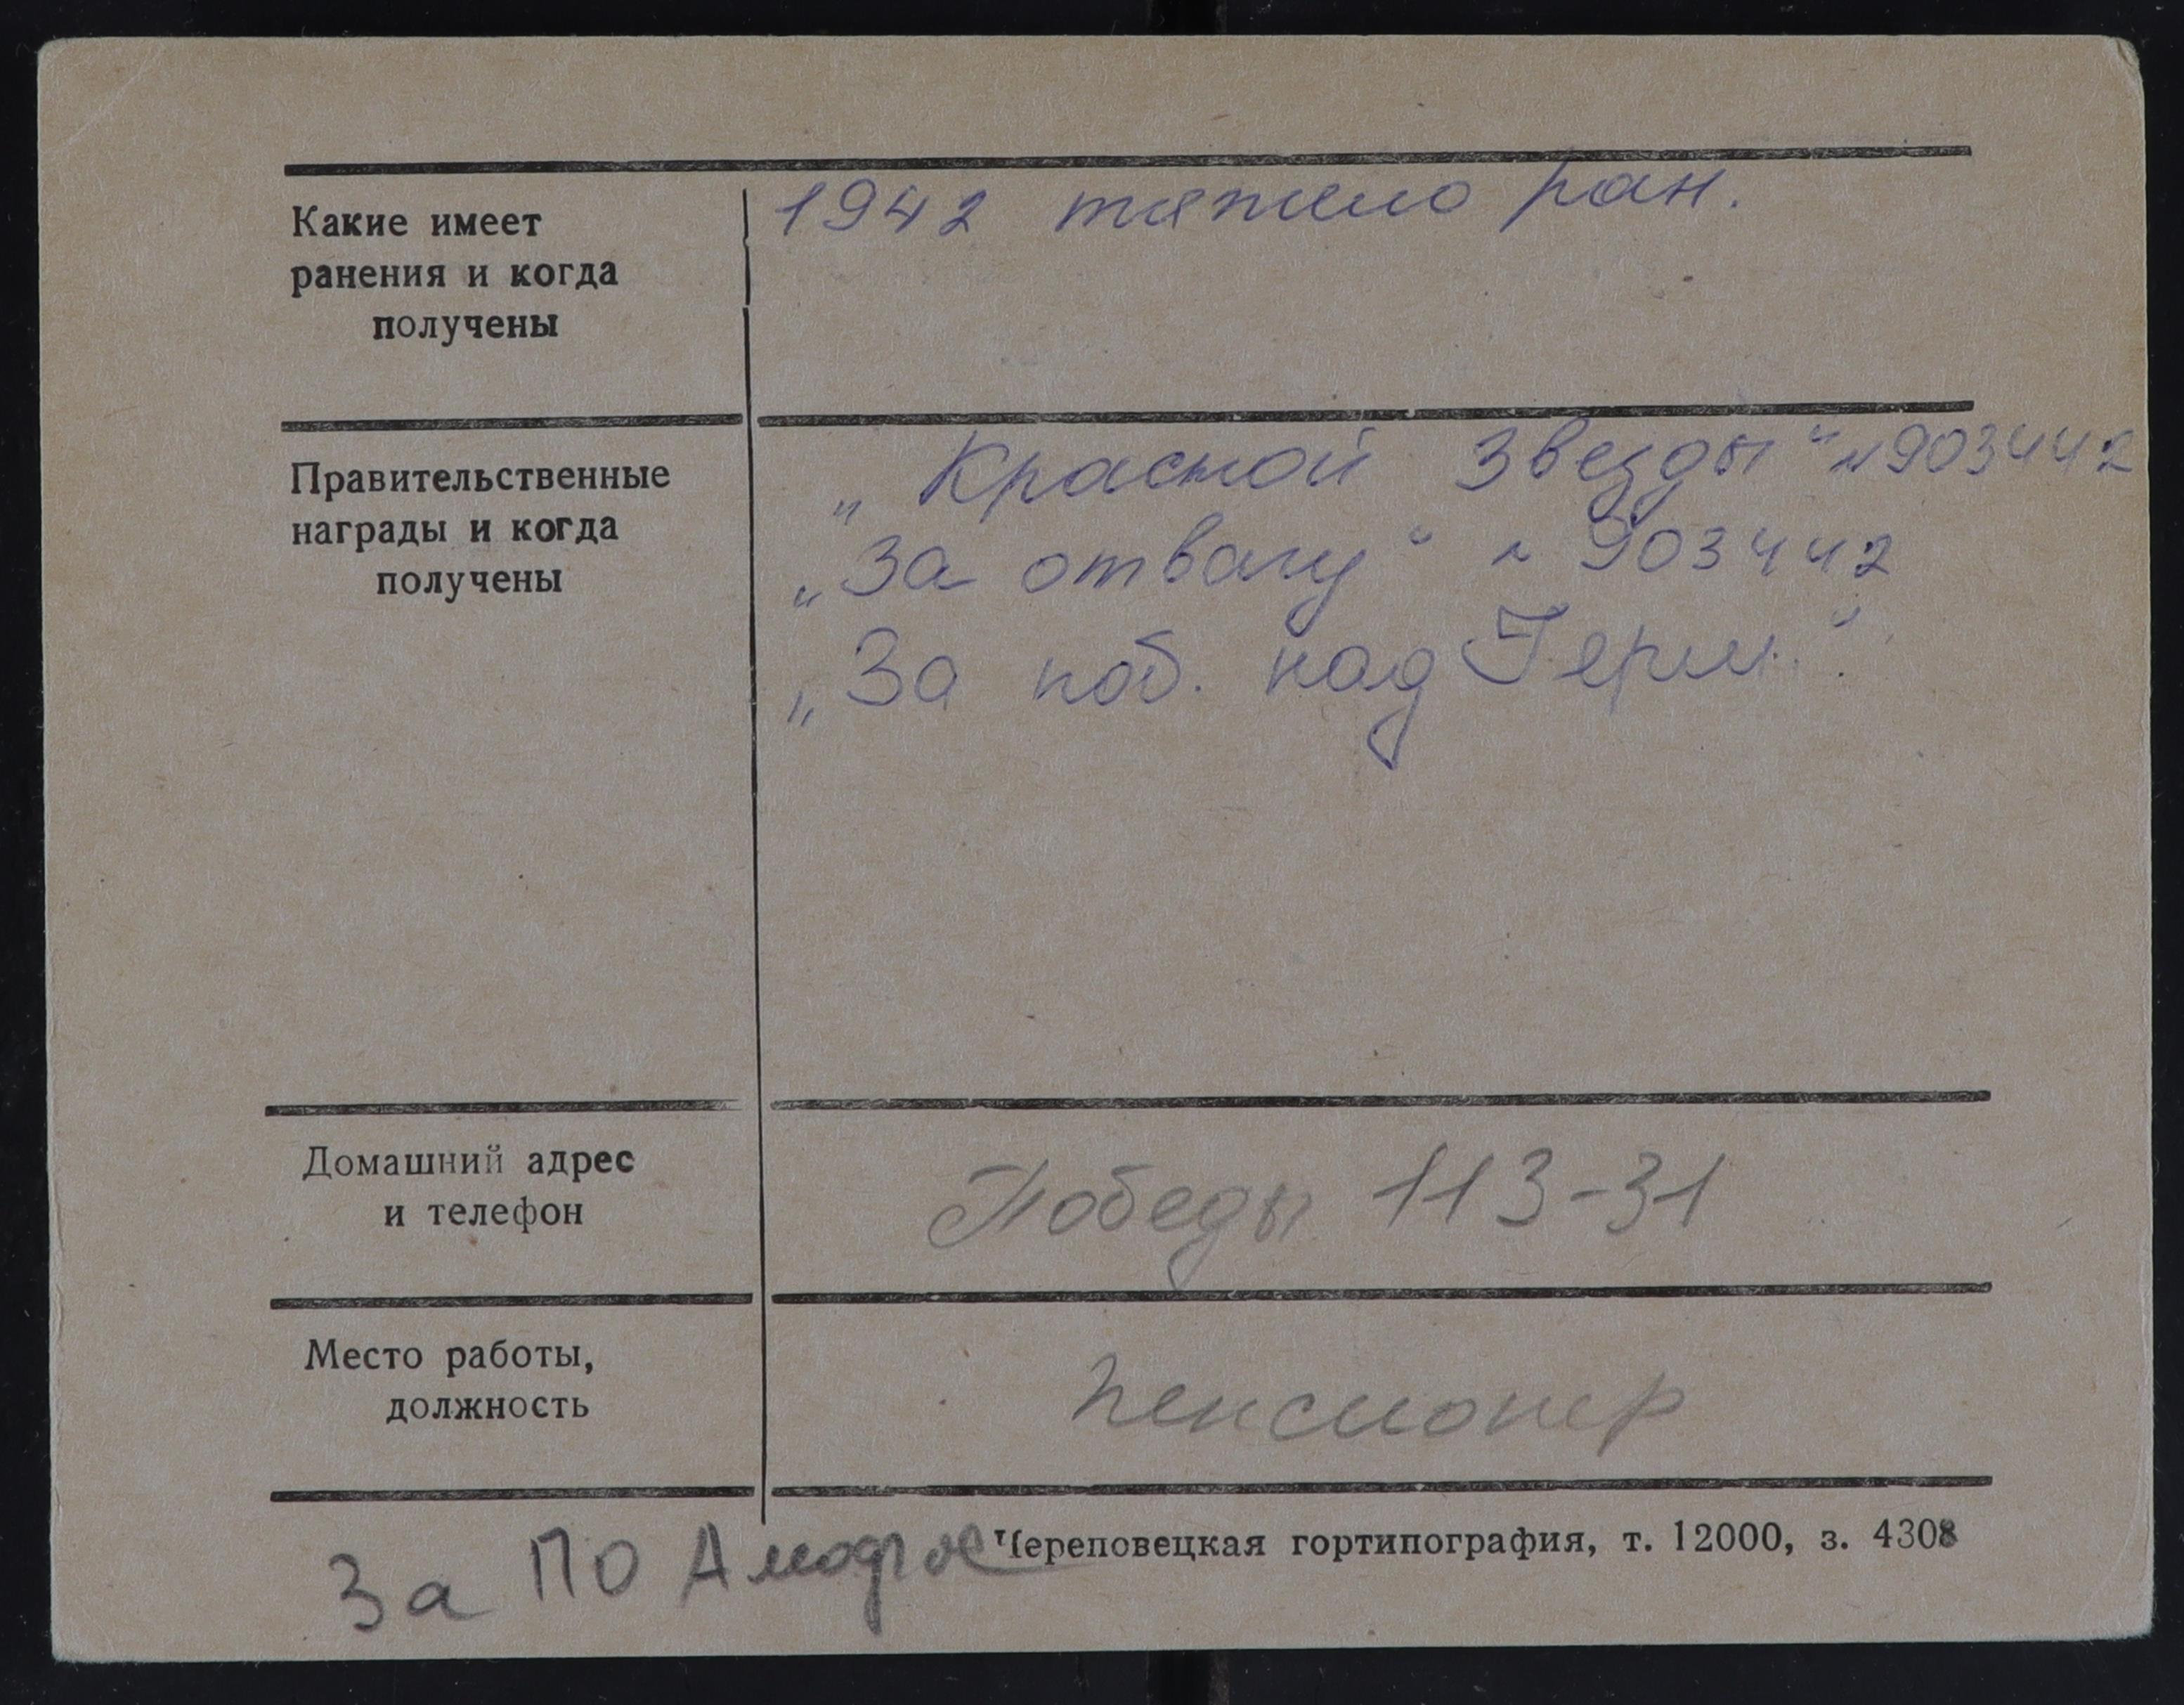 Какие имеет
ранения и когда
получены
1942 тяжело ран.
Правительственные
награды и когда
получены
„Красной Звезды“ №903442
„За отвагу“ № 903442
„За поб. над Герм.“
Домашний адрес
и телефон
Победы 113-31
Место работы,
должность
пенсионер
Череповецкая гортипография, т. 12000, з. 4308
За ПО